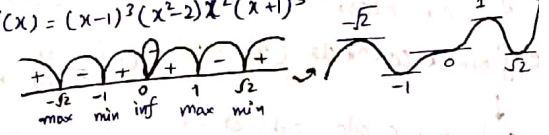 '(x) = (x-1)³(x²-2)x²(x+1)³
-√2 1
+ - + + - +
-√2 -1 0 1 √2
max min inf max min
-1 0 √2